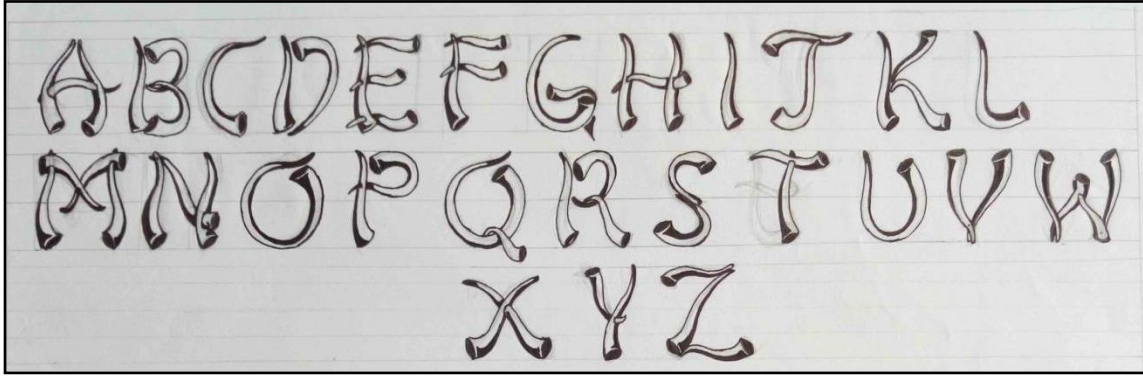 ABCDEFGHIJKL
MNOPQRSTUVW
XYZ